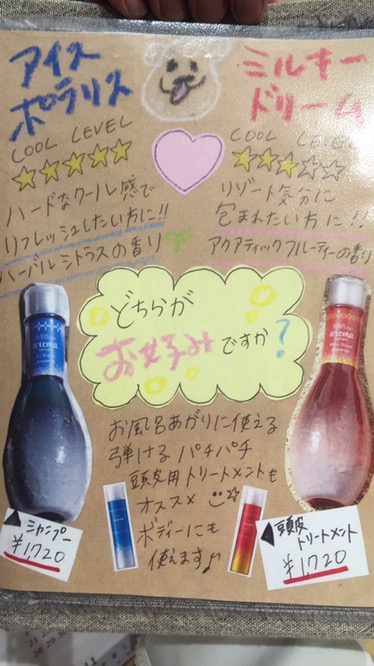 アイス
ポラリス
COOL LEVEL
ハードなクール感で
リフレッシュしたい方に!!
ハーバルシトラスの香り
ミルキー
ドリーム
COOL LEVEL
リゾート気分に
包まれたい方に!!
アクアティックフルーティーの香り
どちらが
お好みですか?
aroma
aroma
お風呂あがりに使える
弾ける パチパチ
頭皮用トリートメントも
オススメ
ボディーにも
使えます♪
シャンプー
¥1720
頭皮
トリートメント
¥1720